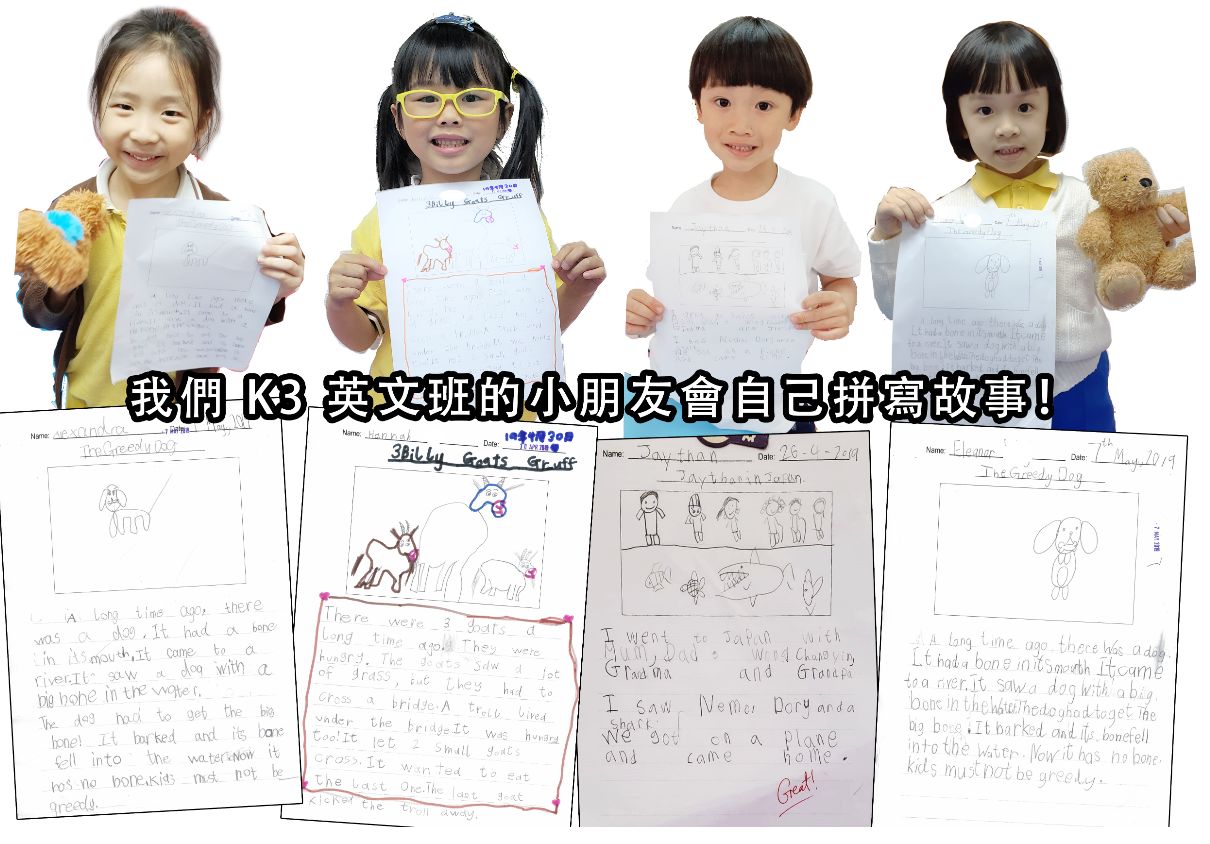 19年4月30日
3Billy Goats Gruff
Jaythan
The Greedy Dog
The Greedy Dog
A long time ago there was a dog.
It had a bone in its mouth It came
to a river. It saw a dog with a big
我們 K3 英文班的小朋友會自己拼寫故事!
Name: Alexandra Date: 7 May, 2019
The Greedy Dog
A long time ago, there
was a dog. It had a bone
in its mouth. It came to a
river. It saw a dog with a
big bone in the water.
The dog had to get the big
bone! It barked and its bone
fell into the water. Now it
has no bone. Kids must not be
greedy.
Name: Hannah Date: 19年4月30日
30 APR 2019
3Billy Goats Gruff
There were 3 goats a
long time ago. They were
hungry. The goats saw a lot
of grass, but they had to
cross a bridge. A troll lived
under the bridge It was hungry
too! It let 2 small goats
cross. It wanted to eat
the last one. The last goat
kicked the troll away.
Name: Jaythan Date: 26-4-2019
Jaythan in Japan.
I went to Japan with
Mum, Dad,
Grandma and Grandpa
I saw Nemo, Dory and a
shark.
We got on a plane
and came home.
Great!
Name: Eleanor Date: 7th May, 2019
The Greedy Dog
7 MAY 2019
A long time ago there was a dog.
It had a bone in its mouth It came
to a river. It saw a dog with a big
bone in the water. The dog had to get the
big bone! It barked and its bone fell
into the water. Now it has no bone.
kids must not be greedy.